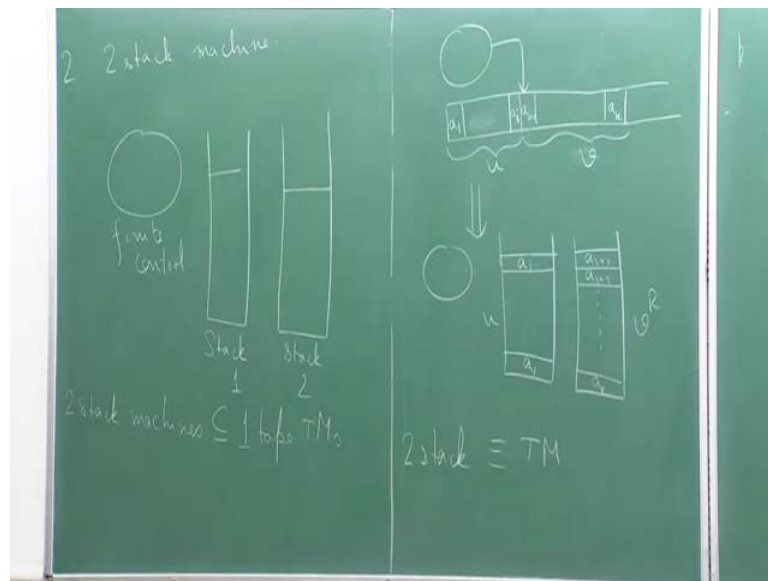 2 2 stack machine.
finite
control
Stack
1
stack
2
2 stack machines ⊆ 1 tape TMs
a₁ aᵢ aᵢ₊₁ aₖ
u v
⇓
aᵢ aᵢ₊₁
aᵢ₊₂
u vᴿ
a₁ aₖ
2 stack ≡ TM